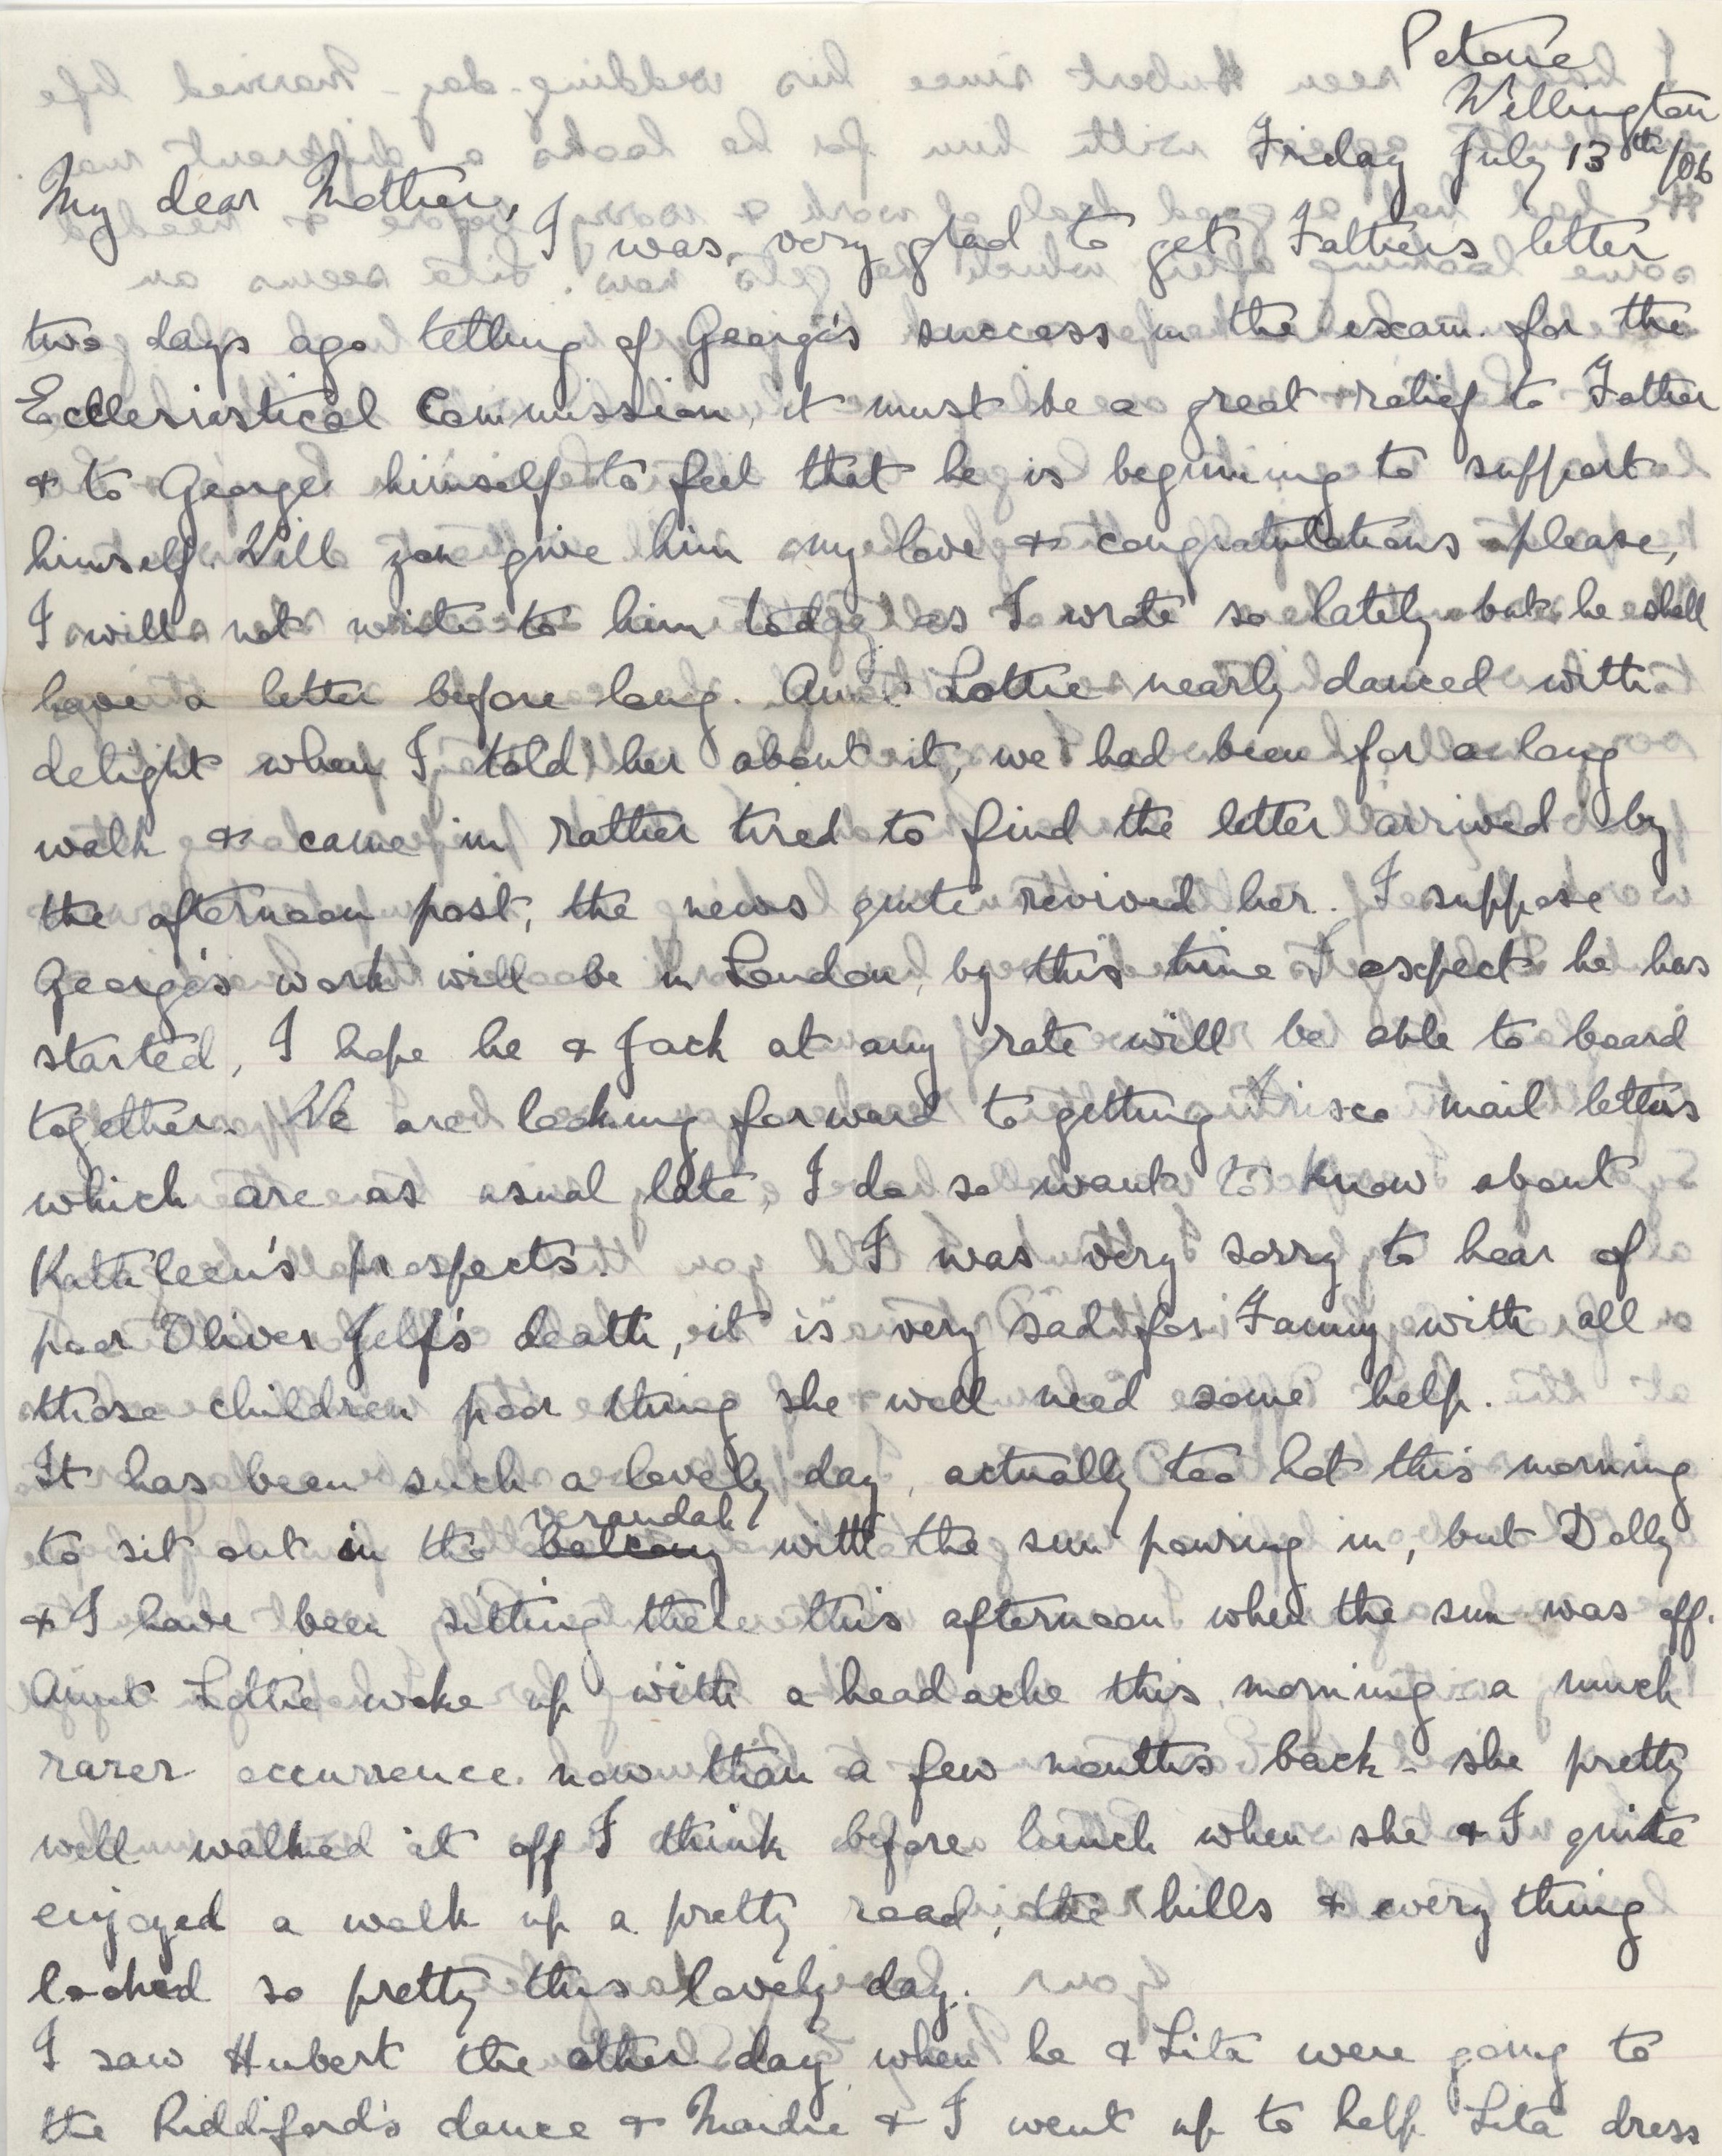 Petone
Wellington
Friday July 13th/06
My dear Mother,
I was very glad to get Fathers letter
two days ago telling of George's success in the exam. for the
Ecclesiastical Commission, it must be a great relief to Father
& to George himself to feel that he is beginning to support
himself. Will you give him my love & congratulations please,
I will not write to him today as I wrote so lately but he shall
have a letter before long. Aunt Lottie nearly danced with
delight when I told her about it, we had been for a long
walk & came in rather tired to find the letter arrived by
the afternoon post, the news quite revived her. I suppose
George's work will be in London, by this time I expect he has
started, I hope he & Jack at any rate will be able to board
together. We are looking forward to getting Frisco mail letters
which are as usual late, I do so want to know about
Kathleen's prospects. I was very sorry to hear of
poor Oliver Jelf's death, it is very sad for Fanny with all
those children poor thing she will need some help.
It has been such a lovely day, actually too hot this morning
to sit out in the balcony verandah with the sun pouring in, but Dolly
& I have been sitting there this afternoon when the sun was off.
Aunt Lottie woke up with a headache this morning - a much
rarer occurrence now than a few months back - she pretty
well walked it off I think before lunch when she & I quite
enjoyed a walk up a pretty road, the hills & everything
looked so pretty this lovely day.
I saw Hubert the other day when he & Lita were going to
the Riddiford's dance & Maidie & I went up to help Lita dress